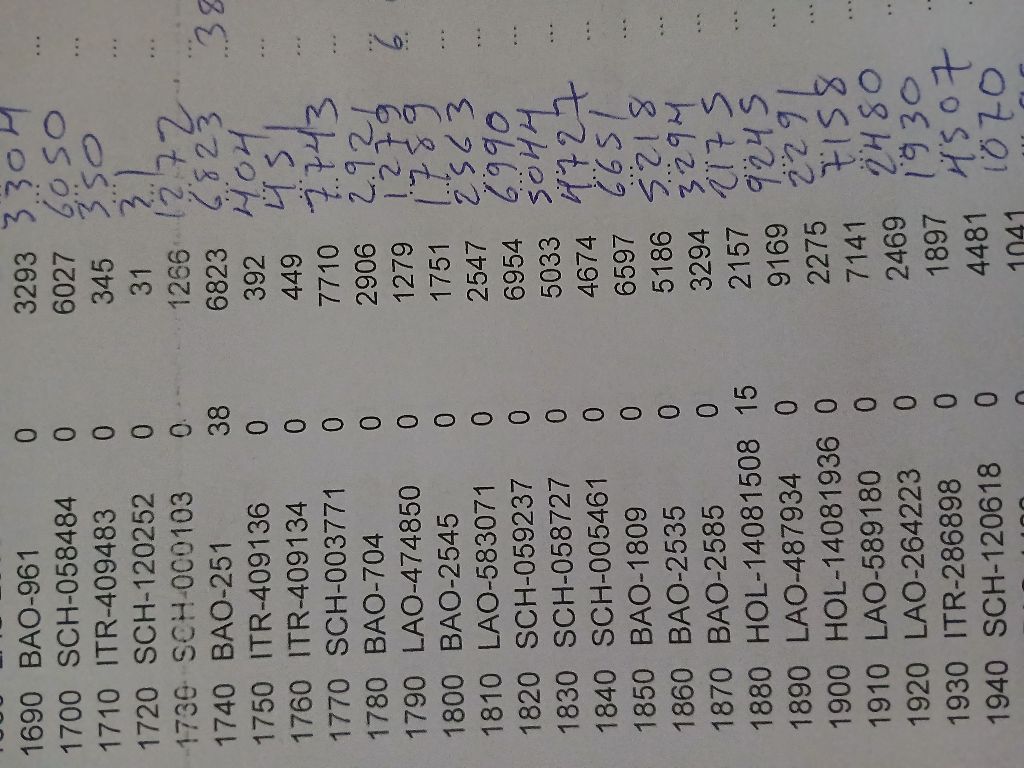 1690 BAO-961 0 3293 3304 ...
1700 SCH-058484 0 6027 6050 ...
1710 ITR-409483 0 345 350 ...
1720 SCH-120252 0 31 31 ...
1730 SCH-000103 0 1266 1272 ...
1740 BAO-251 38 6823 6823 38
1750 ITR-409136 0 392 404 ...
1760 ITR-409134 0 449 451 ...
1770 SCH-003771 0 7710 7743 ...
1780 BAO-704 0 2906 2921 ...
1790 LAO-474850 0 1279 1279 6
1800 BAO-2545 0 1751 1789 ...
1810 LAO-583071 0 2547 2563 ...
1820 SCH-059237 0 6954 6990 ...
1830 SCH-058727 0 5033 5044 ...
1840 SCH-005461 0 4674 4727 ...
1850 BAO-1809 0 6597 6651 ...
1860 BAO-2535 0 5186 5218 ...
1870 BAO-2585 0 3294 3294 ...
1880 HOL-14081508 15 2157 2175 ...
1890 LAO-487934 0 9169 9245 ...
1900 HOL-14081936 0 2275 2291 ...
1910 LAO-589180 0 7141 7158 ...
1920 LAO-264223 0 2469 2480 ...
1930 ITR-286898 0 1897 1930 ...
1940 SCH-120618 0 4481 4507 ...
1041 1070